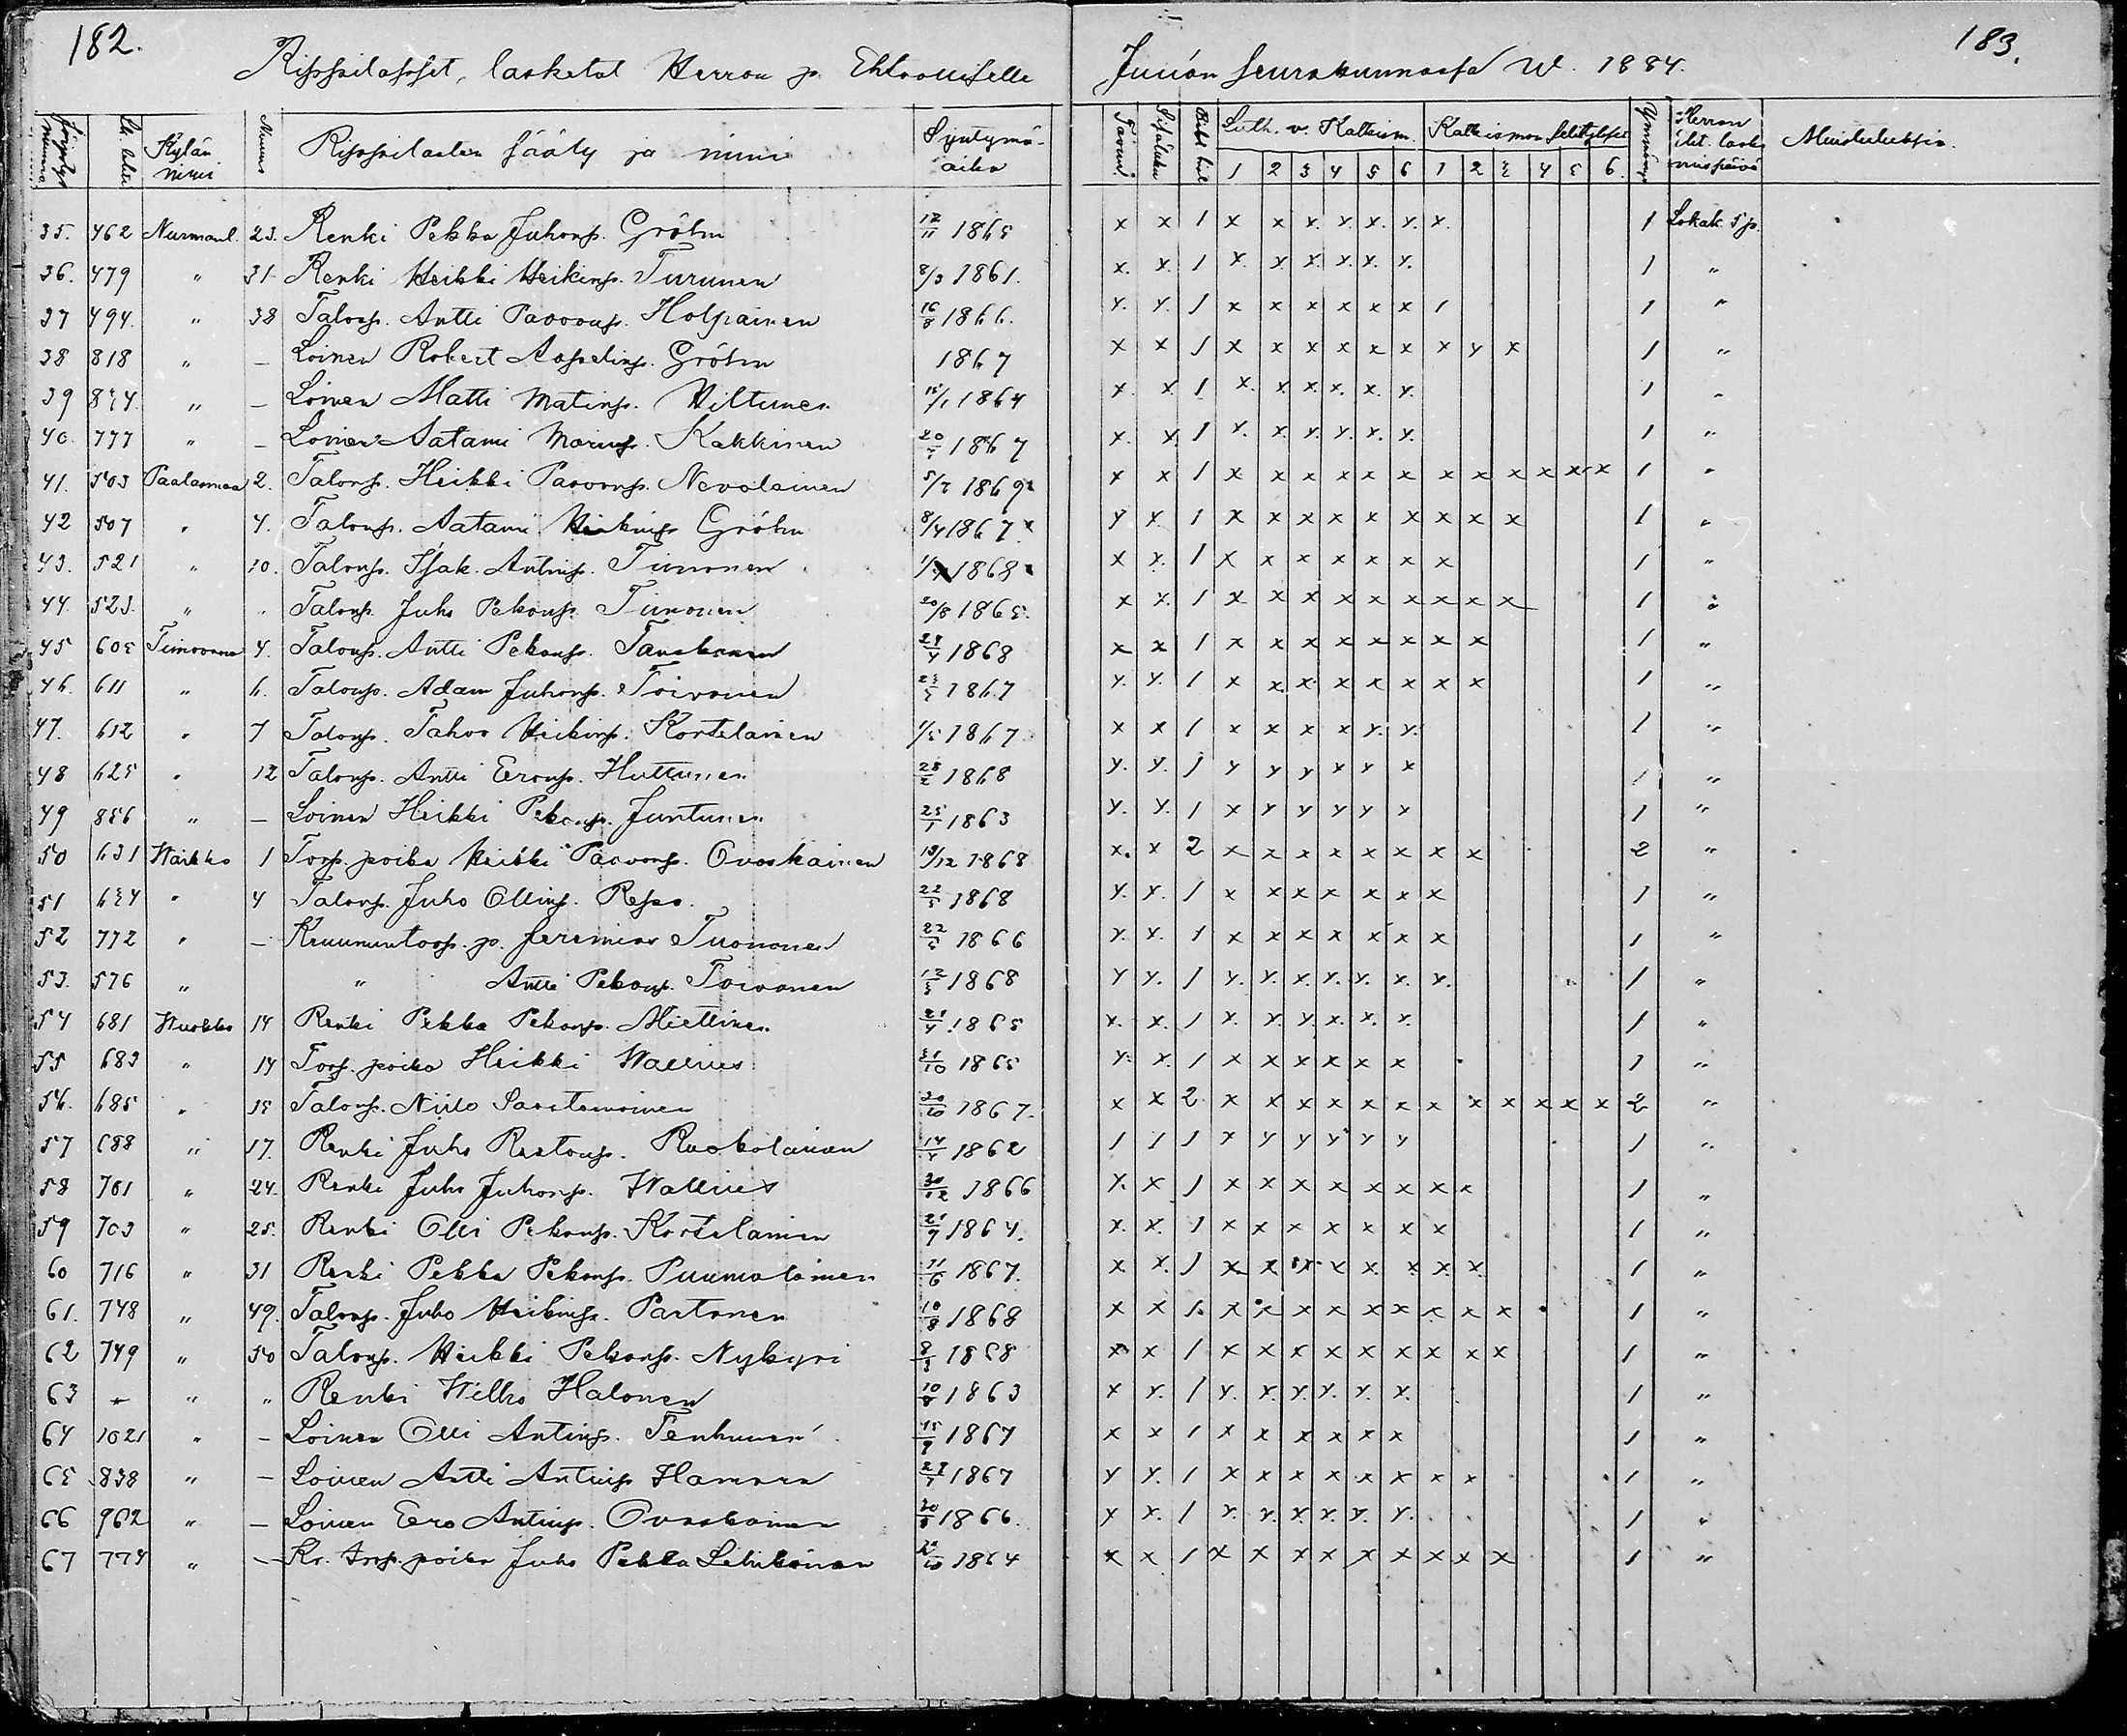 182.
183.
Rippilapset, lasketut Herran p. Ehtoolliselle Juuan seurakunnassa W. 1884.
Kylän nimi Rippilasten sääty ja nimi Syntymä-aika Luth. v. Katkism. Katkismon selitykset Herran eht. lask. mispäivä Muistutuksia.
1 2 3 4 5 6 1 2 3 4 5 6.
35. 462 Nurmanl. 23. Renki Pekka Juhonp. Gröhn 12/11 1865 x x 1 x x x x x x x 1 Lokak. 5 p.
36. 479 " 31 Renki Heikki Heikinp. Turunen 8/3 1861. x x 1 x x x x x x 1 "
37 494. " 38 Talonp. Antti Paavonp. Holpainen 16/8 1866. x x 1 x x x x x x 1 1 "
38 818 " – Loinen Robert Aapelinp. Gröhn 1867 x x 1 x x x x x x x x x 1 "
39 " – Loinen Matti Matinp. Hiltunen 1864 x x 1 x x x x x x 1 "
40. 777 " – Loinen Aatami Kakkinen 1867 x x 1 x x x x x x 1 "
41. 503 Paalasmaa 2. Talonp. Heikki Paavonp. Nevalainen 5/7 1869 x x 1 x x x x x x x x x x x x 1 "
42 507 " 4. Talonp. Aatami Heikinp. Gröhn 8/4 1867 x x 1 x x x x x x x x x 1 "
43. 521 " 10. Talonp. Isak Antinp. Timonen 1868 x x 1 x x x x x x x 1 "
44. 523. " " Talonp. Juho Pekonp. Timonen 20/8 1865. x x 1 x x x x x x x x x 1 "
45 605 Timovaara 4. Talonp. Antti Pekonp. Tanskanen 1868 x x 1 x x x x x x x x 1 "
46. 611 " 6. Talonp. Adam Juhonp. Toivonen 1867 x x 1 x x x x x x x x 1 "
47. 612 " 7 Talonp. Tahvo Heikinp. Kortelainen 1/5 1867 x x 1 x x x x x x 1 "
48 625 " 12 Talonp. Antti Eronp. Huttunen 28/2 1868 x x 1 x x x x x x 1 "
49 856 " – Loinen Heikki Pekonp. Juntunen 25/1 1863 x x 1 x x x x x x 1 "
50 631 Waikko 1 Torp. poika Heikki Paavonp. Ovaskainen 13/12 1868 x x 2 x x x x x x x x 2 "
51 634 " 4 Talonp. Juho Ollinp. Repo. 1868 x x 1 x x x x x x x 1 "
52 772 " – Kruununtorp. p. Jeremias Tuononen 1866 x x 1 x x x x x x x 1 "
53. 576 " " Antti Pekonp. Toivonen 1868 x x 1 x x x x x x x 1 "
54 681 Wuokko 14 Renki Pekka Pekonp. Miettinen 21/4 1865 x x 1 x x x x x x 1 "
55 683 " 14 Torp. poika Heikki Wallius 31/10 1865 x x 1 x x x x x x 1 "
56. 685 " 15 Talonp. Niilo Saastamoinen 30/10 1867. x x 2 x x x x x x x x x x x x 2 "
57 688 " 17. Renki Juho Ristonp. Ruokolainen 14/4 1862 1 1 1 x x x x x x 1 "
58 701 " 24. Renki Juho Juhonp. Wallius 30/12 1866 x x 1 x x x x x x x x 1 "
59 703 " 25. Renki Olli Pekonp. Kortelainen 21/9 1864. x x 1 x x x x x x x 1 "
60 716 " 31 Renki Pekka Pekonp. Puumalainen 11/6 1867. x x 1 x x x x x x x x 1 "
61. 748 " 49. Talonp. Juho Heikinp. Partanen 10/8 1868 x x 1 x x x x x x x x x 1 "
62 749 " 50 Talonp. Heikki Pekonp. Nykyri 1868 x x 1 x x x x x x x x x 1 "
63 " " Renki Wilho Halonen 10/8 1863 x x 1 x x x x x x 1 "
64 1021 " – Loinen Olli Antinp. Tenhunen 15/9 1867 x x 1 x x x x x x 1 "
65 838 " – Loinen Antti Antinp. 1867 x x 1 x x x x x x x x 1 "
66 962 " – Loinen Eero Antinp. Ovaskainen 1866. x x 1 x x x x x x 1 "
67 774 " – Kr. torp. poika Juho Pekka Lehikoinen 1864 x x 1 x x x x x x x x x 1 "